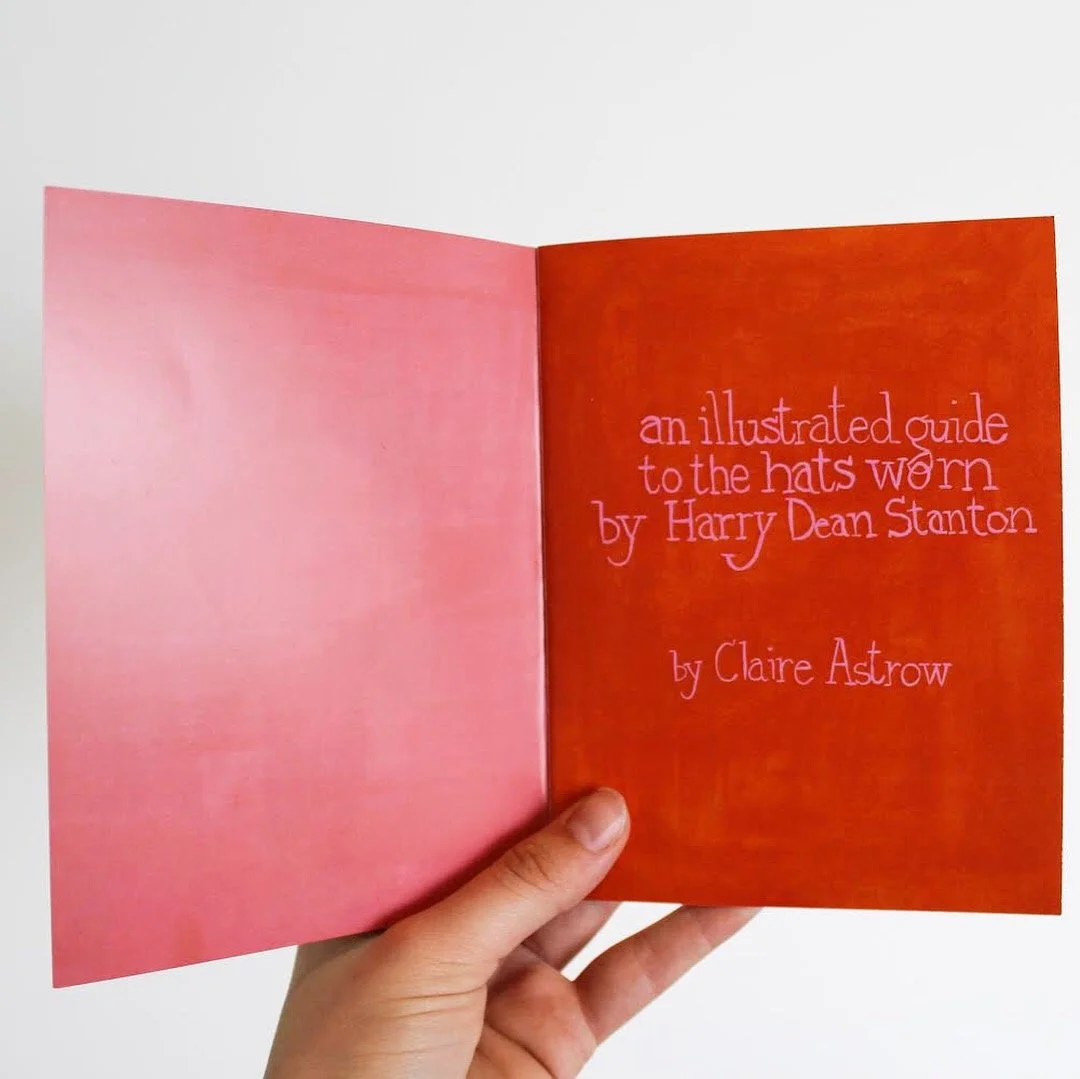 an illustrated guide
to the hats worn
by Harry Dean Stanton
by Claire Astrow